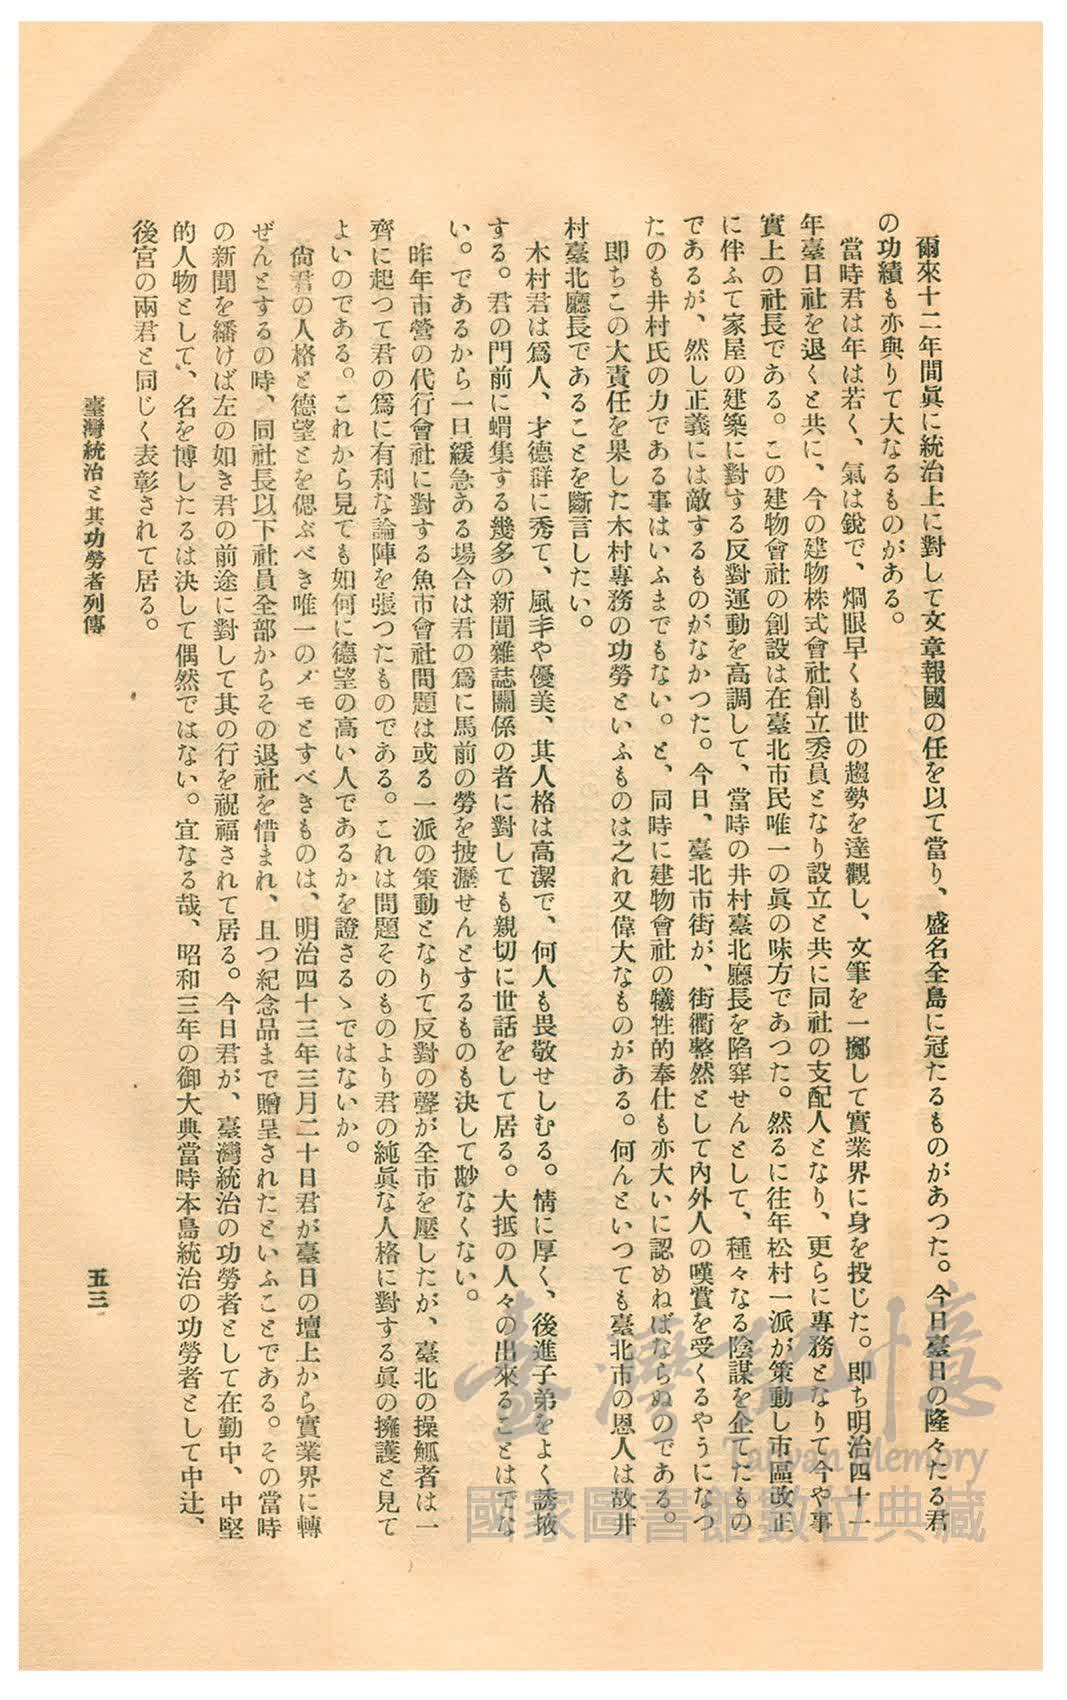 爾來十二年間眞に統治上に對して文章報國の任を以て當り、盛名全島に冠たるものがあつた。今日臺日の隆々たる君
の功績も亦與りて大なるものがある。
當時君は年は若く、氣は銳で、烱眼早くも世の趨勢を達觀し、文筆を一擲して實業界に身を投じた。即ち明治四十一
年臺日社を退くと共に、今の建物株式會社創立委員となり設立と共に同社の支配人となり、更らに專務となりて今や事
實上の社長である。この建物會社の創設は在臺北市民唯一の眞の味方であつた。然るに往年松村一派が策動し市區改正
に伴ふて家屋の建築に對する反對運動を高調して、當時の井村臺北廳長を陷穽せんとして、種々なる陰謀を企てたもの
であるが、然し正義には敵するものがなかつた。今日、臺北市街が、街衢整然として內外人の嘆賞を受くるやうになつ
たのも井村氏の力である事はいふまでもない。と、同時に建物會社の犧牲的奉仕も亦大いに認めねばならぬのである。
即ちこの大責任を果した木村專務の功勞といふものは之れ又偉大なものがある。何んといつても臺北市の恩人は故井
村臺北廳長であることを斷言したい。
木村君は爲人、才德群に秀て、風丰や優美、其人格は高潔で、何人も畏敬せしむる。情に厚く、後進子弟をよく誘掖
する。君の門前に蝟集する幾多の新聞雜誌關係の者に對しても親切に世話をして居る。大抵の人々の出來ることはでな
い。であるから一日緩急ある場合は君の爲に馬前の勞を披瀝せんとするものも決して尠なくない。
昨年市營の代行會社に對する魚市會社問題は或る一派の策動となりて反對の聲が全市を壓したが、臺北の操觚者は一
齊に起つて君の爲に有利な論陣を張つたものである。これは問題そのものより君の純眞な人格に對する眞の擁護と見て
よいのである。これから見ても如何に德望の高い人であるかを證さるゝではないか。
尙君の人格と德望とを偲ぶべき唯一のメモとすべきものは、明治四十三年三月二十日君が臺日の壇上から實業界に轉
ぜんとするの時、同社長以下社員全部からその退社を惜まれ、且つ紀念品まで贈呈されたといふことである。その當時
の新聞を繙けば左の如き君の前途に對して其の行を祝福されて居る。今日君が、臺灣統治の功勞者として在勤中、中堅
的人物として、名を博したるは決して偶然ではない。宜なる哉、昭和三年の御大典當時本島統治の功勞者として中辻、
後宮の兩君と同じく表彰されて居る。
臺灣統治と其功勞者列傳
五三
臺灣記憶
Taiwan Memory
國家圖書館數位典藏